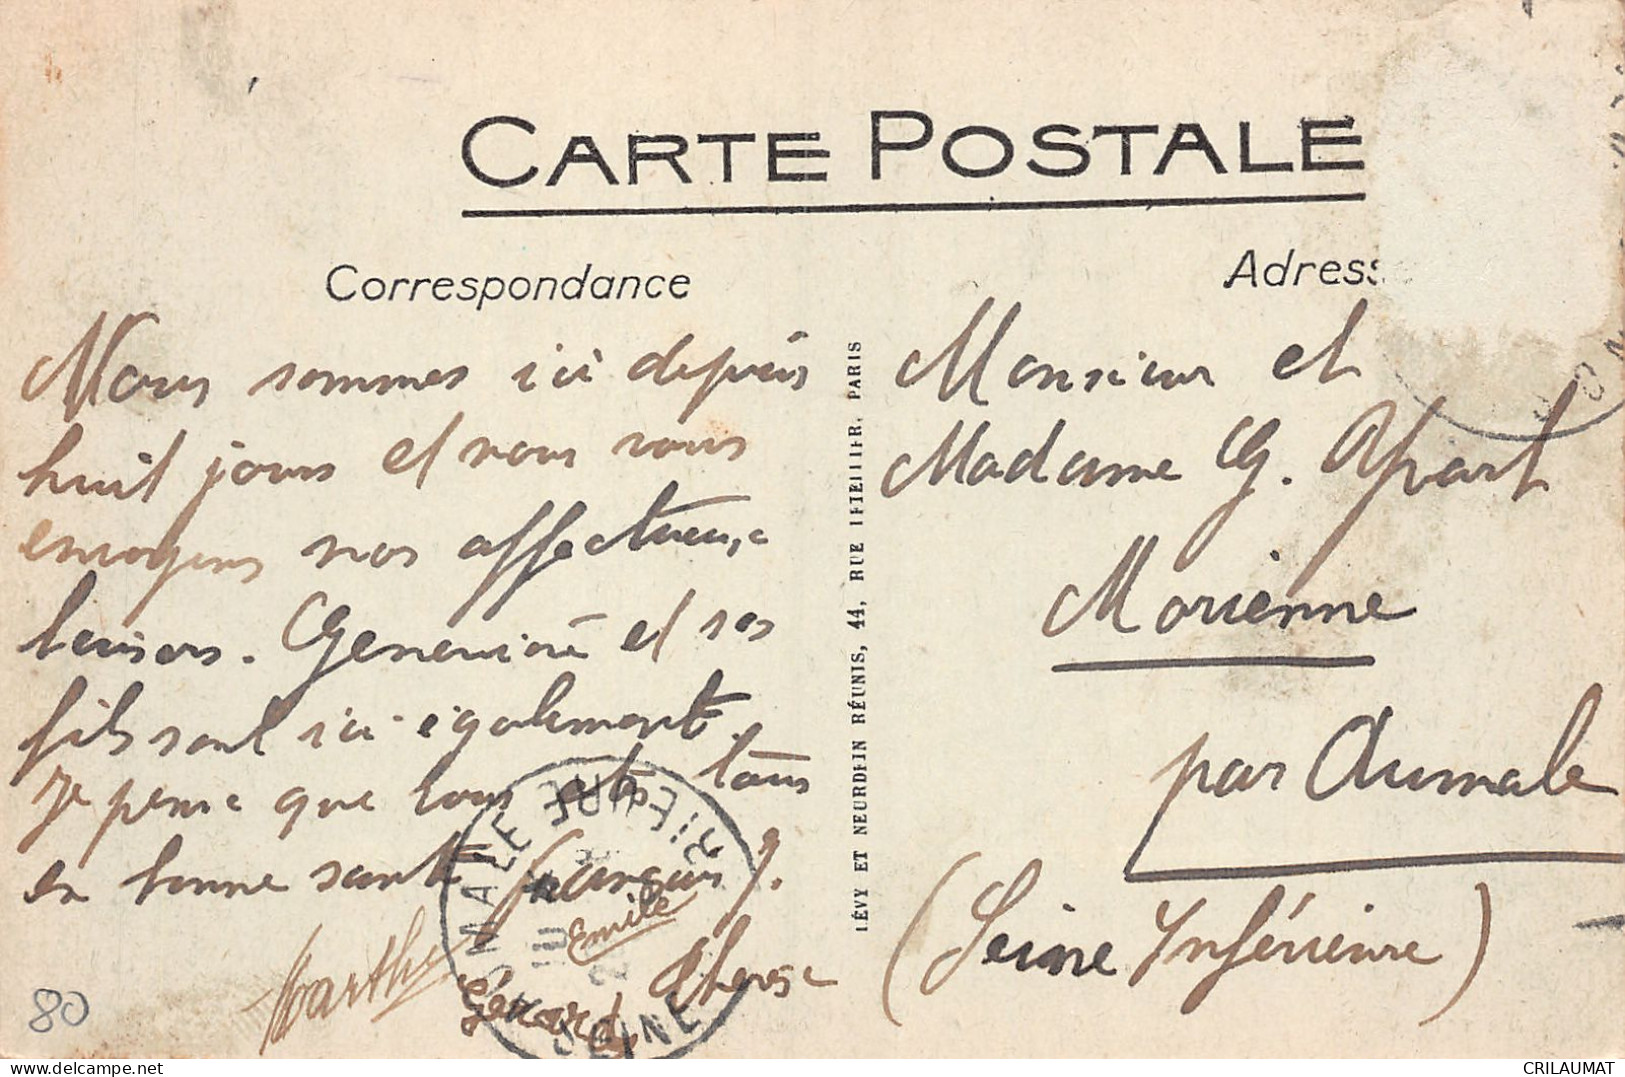 CARTE POSTALE
Correspondance
Adress
Nous sommes ici depuis
huit jours et nous vous
envoyons nos affectueux
baisers. Geneviève et ses
fils sont ici également.
Je pense que vous êtes tous
en bonne santé François J.
Emile
Marthe Gérard Therese
80
LÉVY ET NEURDEIN RÉUNIS, 44, RUE LETELLIER, PARIS
Monsieur et
Madame G. Apart
Morienne
par Aumale
(Seine Inférieure)
AUMALE
SEINE INFÉRIEURE
CRILAUMAT